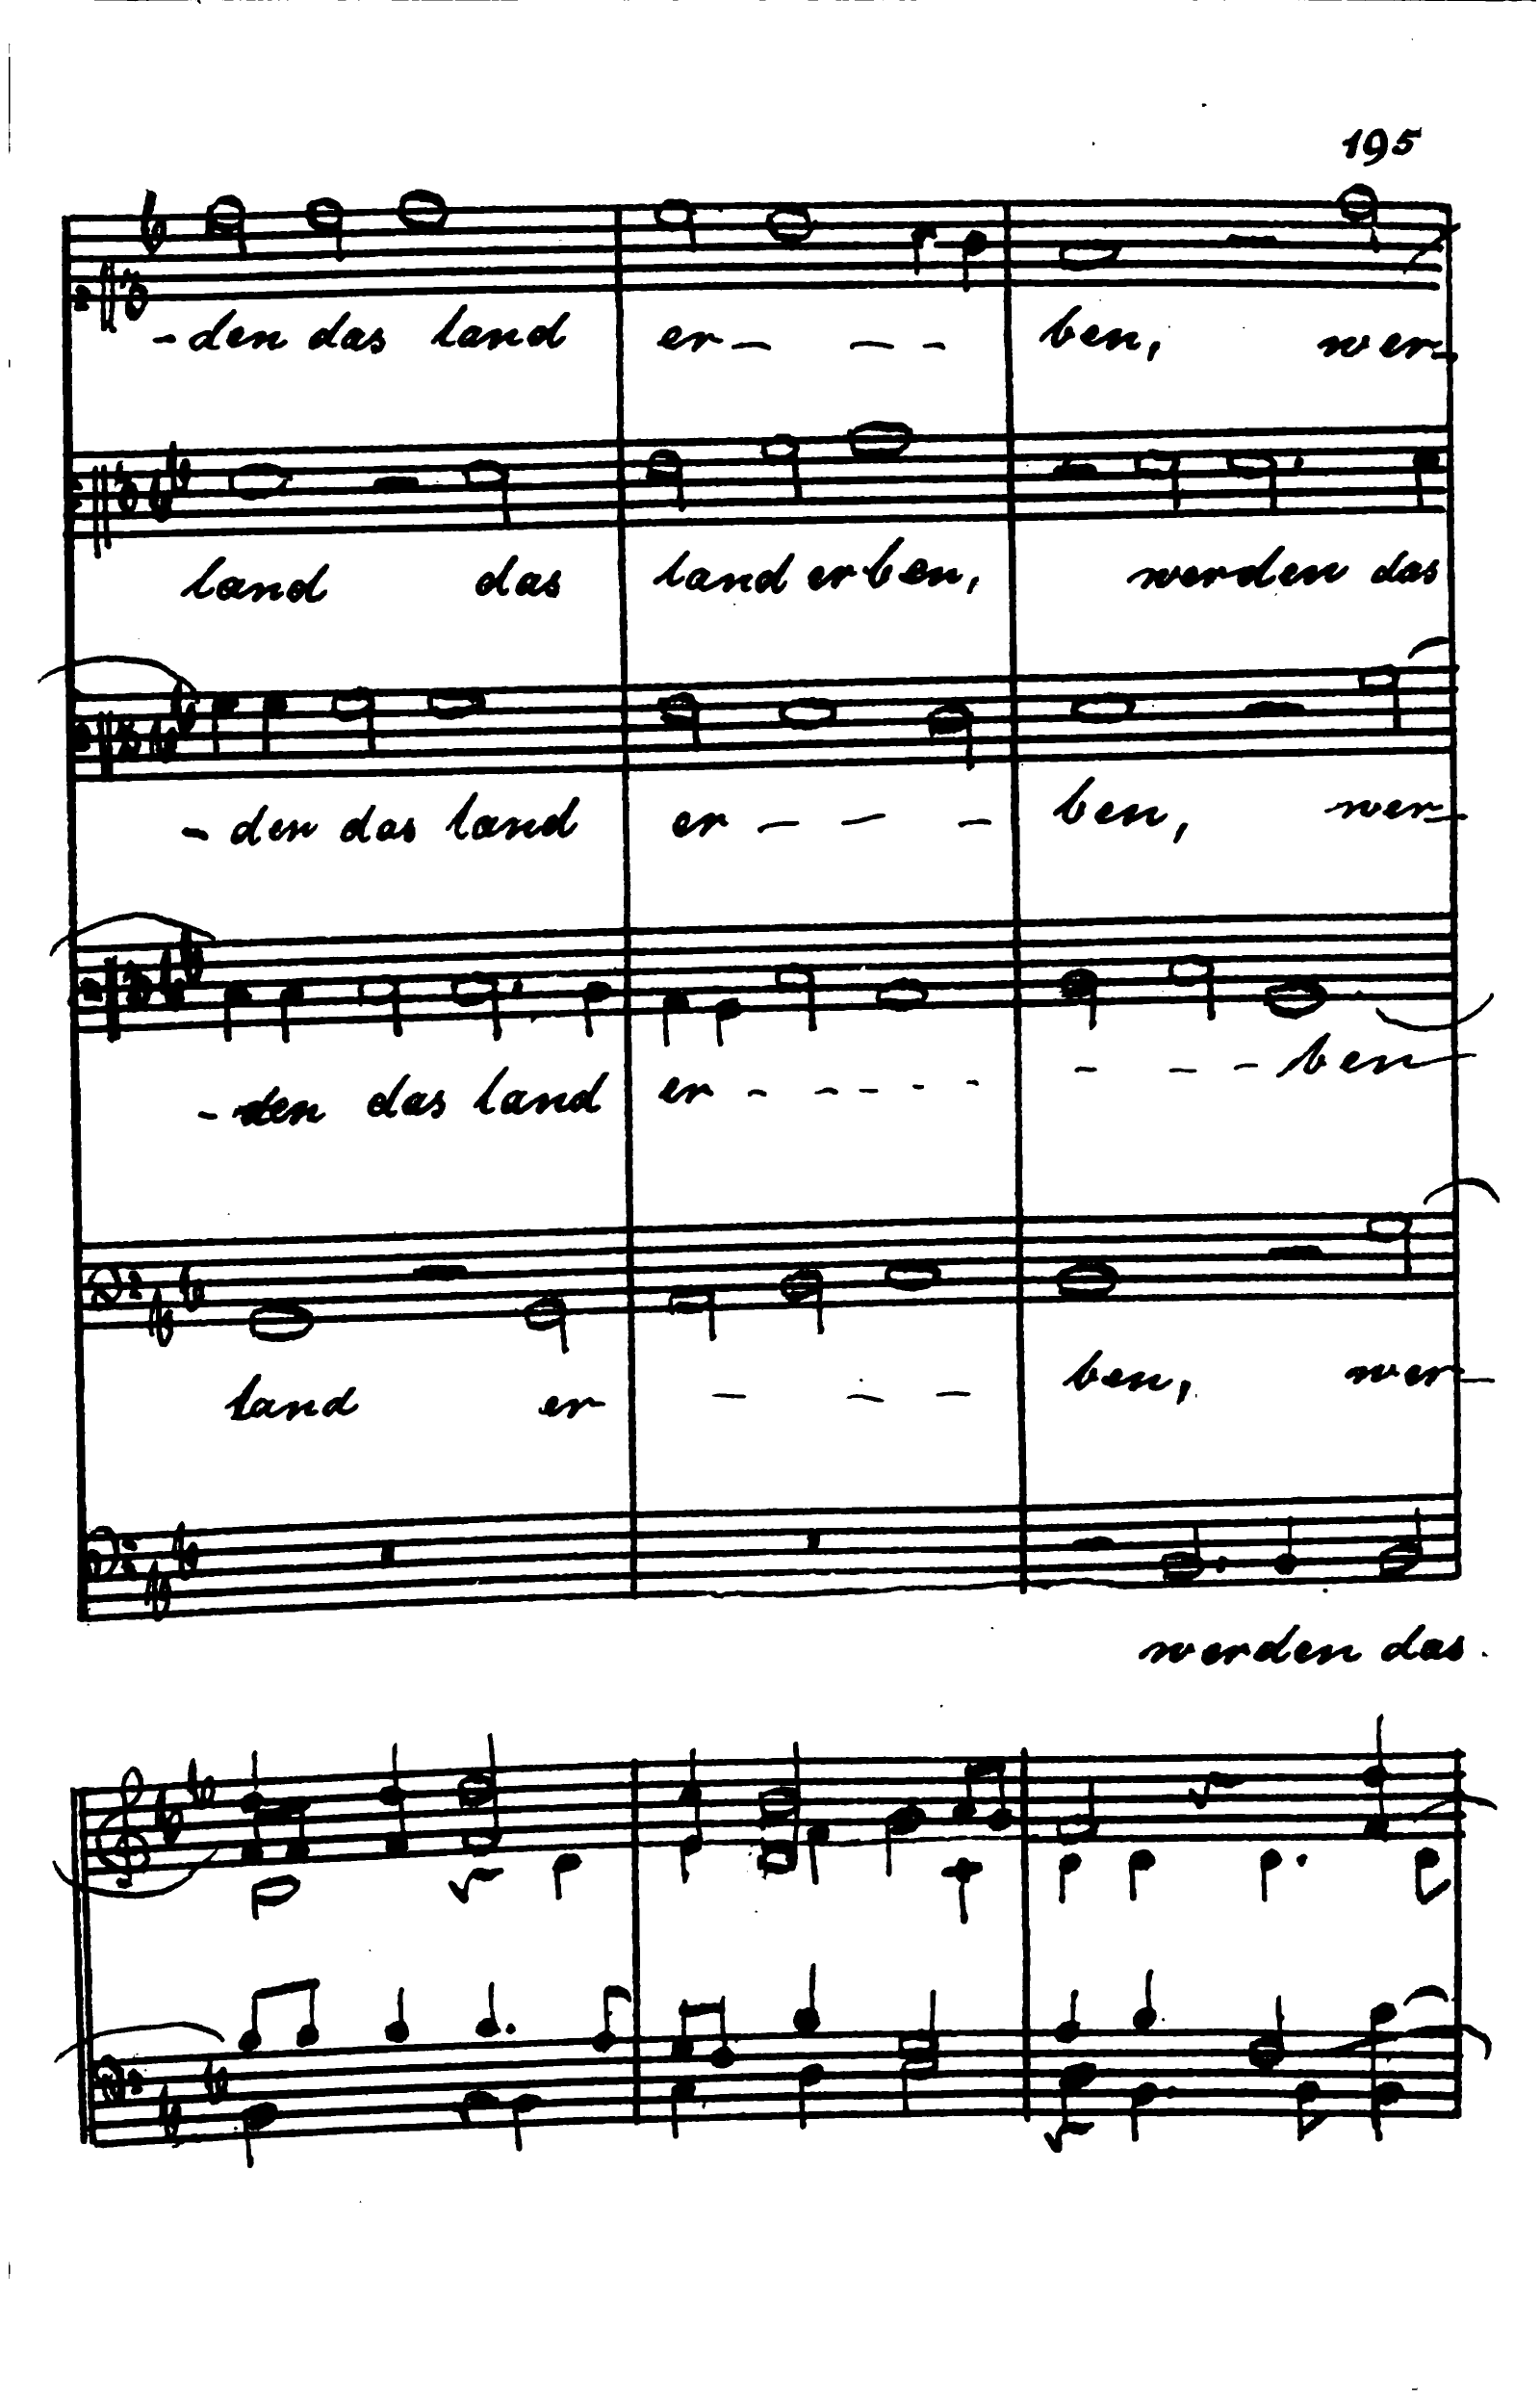 195
-den das land er- - - - ben, wer-
land das land erben, werden das
-den das land er - - - ben, wer-
-den das land er - - - - - - - - ben-
land er - - - ben, wer-
werden das